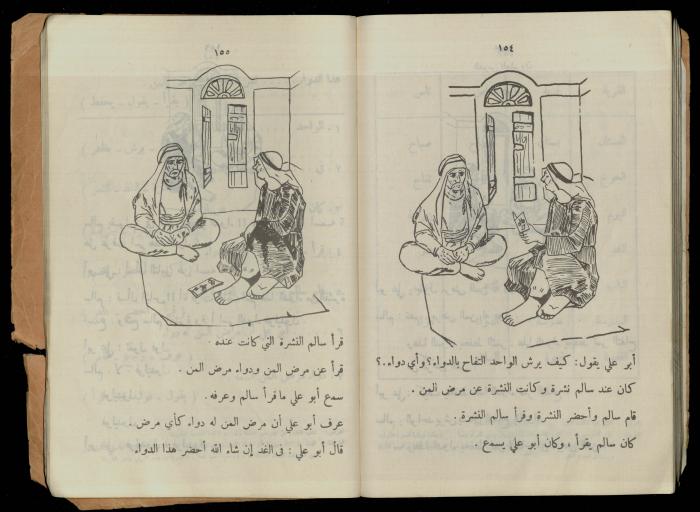 ١٥٤
أبو علي يقول: كيف يرش الواحد التفاح بالدواء؟ وأي دواء.؟
كان عند سالم نشرة وكانت النشرة عن مرض المن .
قام سالم وأحضر النشرة وقرأ سالم النشرة .
كان سالم يقرأ ، وكان أبو علي يسمع .
١٥٥
قرأ سالم النشرة التي كانت عنده .
قرأ عن مرض المن ودواء مرض المن .
سمع أبو علي ما قرأ سالم وعرفه .
عرف أبو علي أن مرض المن له دواء كأي مرض .
قال أبو علي : في الغد إن شاء الله أحضر هذا الدواء